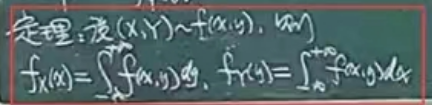 定理:设(X,Y)~f(x,y), 则
f_X(x)=∫_{-∞}^{+∞}f(x,y)dy, f_Y(y)=∫_{-∞}^{+∞}f(x,y)dx